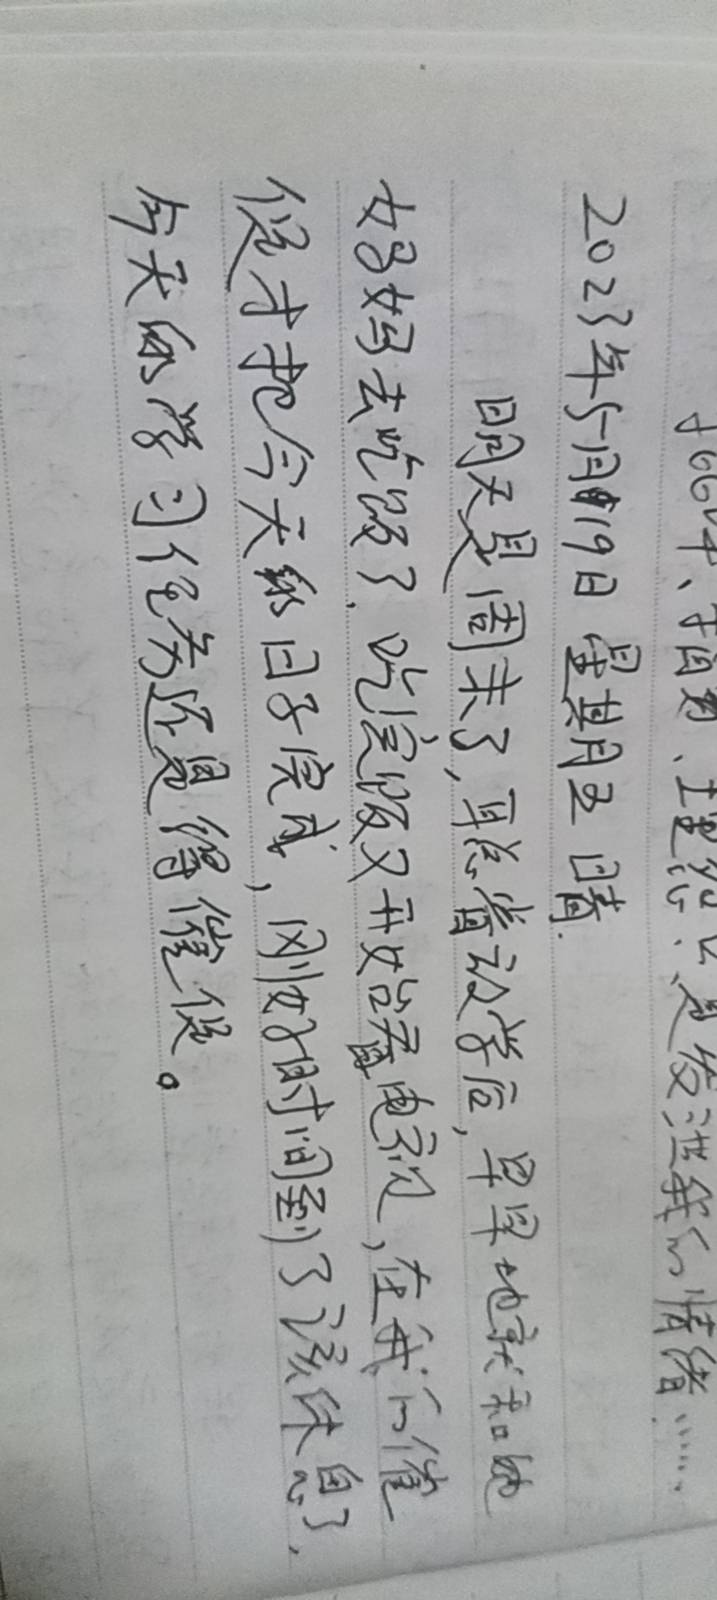 是发泄我的情绪……
2023年5月19日 星期五 晴.
明天是周末了,耳总睿放学后,早早地就和她
妈妈去吃饭了.吃完饭又开始看电视,在我的催
促才把今天的日子完成,刚好时间到了该休息了,
今天的学习任务还是得催促。